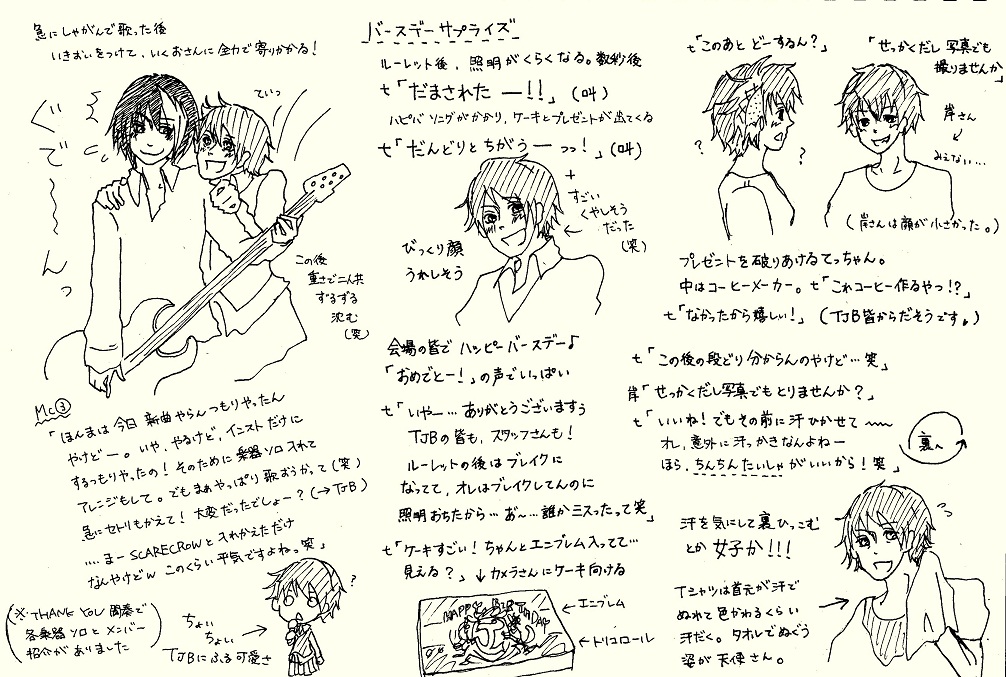 急にしゃがんで歌った後
いきおいをつけて、いくおさんに全力で寄りかかる！
ていっ
ぐでーんっ
この後
重さで二人共
ずるずる
沈む
(笑)
MC③
「ほんまは今日 新曲やらんつもりやったん
やけどー。いや、やるけど、インストだけに
するつもりやったの！そのために楽器ソロ入れて
アレンジもして。でもまぁやっぱり歌おうかって(笑)
急にセトリもかえて！大変だったでしょー？(→TJB)
....まーSCARECROWと入れかえただけ
なんやけどw このくらい平気ですよねっ笑」
(※THANK YOU 間奏で
各楽器ソロとメンバー
紹介がありました)
ちょい
ちょい
TJBにふる可愛さ
?
バースデーサプライズ
ルーレット後、照明がくらくなる。数秒後
て「だまされたー!!」(叫)
ハピバソングがかかり、ケーキとプレゼントが出てくる
て「だんどりとちがうーっっ！」(叫)
+
すごい
くやしそう
だった
(笑)
びっくり顔
うれしそう
会場の皆でハッピーバースデー♪
「おめでとー！」の声でいっぱい
て「いやー…ありがとうございますぅ
TJBの皆も、スタッフさんも！
ルーレットの後はブレイクに
なってて、オレはブレイクしてんのに
照明おちたから…あ〜…誰かミスったって笑」
て「ケーキすごい！ちゃんとエンブレム入ってて…
見える？」↓カメラさんにケーキ向ける
HAPPY BIRTHDAY
←エンブレム
←トリコロール
て「このあと どーするん？」
?
?
「せっかくだし 写真でも
撮りませんか」
岸さん
みえない…
(岸さんは顔が小さかった。)
プレゼントを破りあけるてっちゃん。
中はコーヒーメーカー。て「これコーヒー作るやつ!?」
て「なかったから嬉しい！」(TJB皆からだそうです。)
て「この後の段どり分からんのやけど…笑」
岸「せっかくだし写真でもとりませんか？」
て「いいね！でもその前に汗ひかせて〜〜
オレ、意外に汗っかきなんよねー
ほら、ちんちんたいしゃがいいから！笑」
裏へ
汗を気にして裏ひっこむ
とか 女子か!!!
Tシャツは首元が汗で
ぬれて色かわるくらい
汗だく。タオルでぬぐう
姿が天使さん。